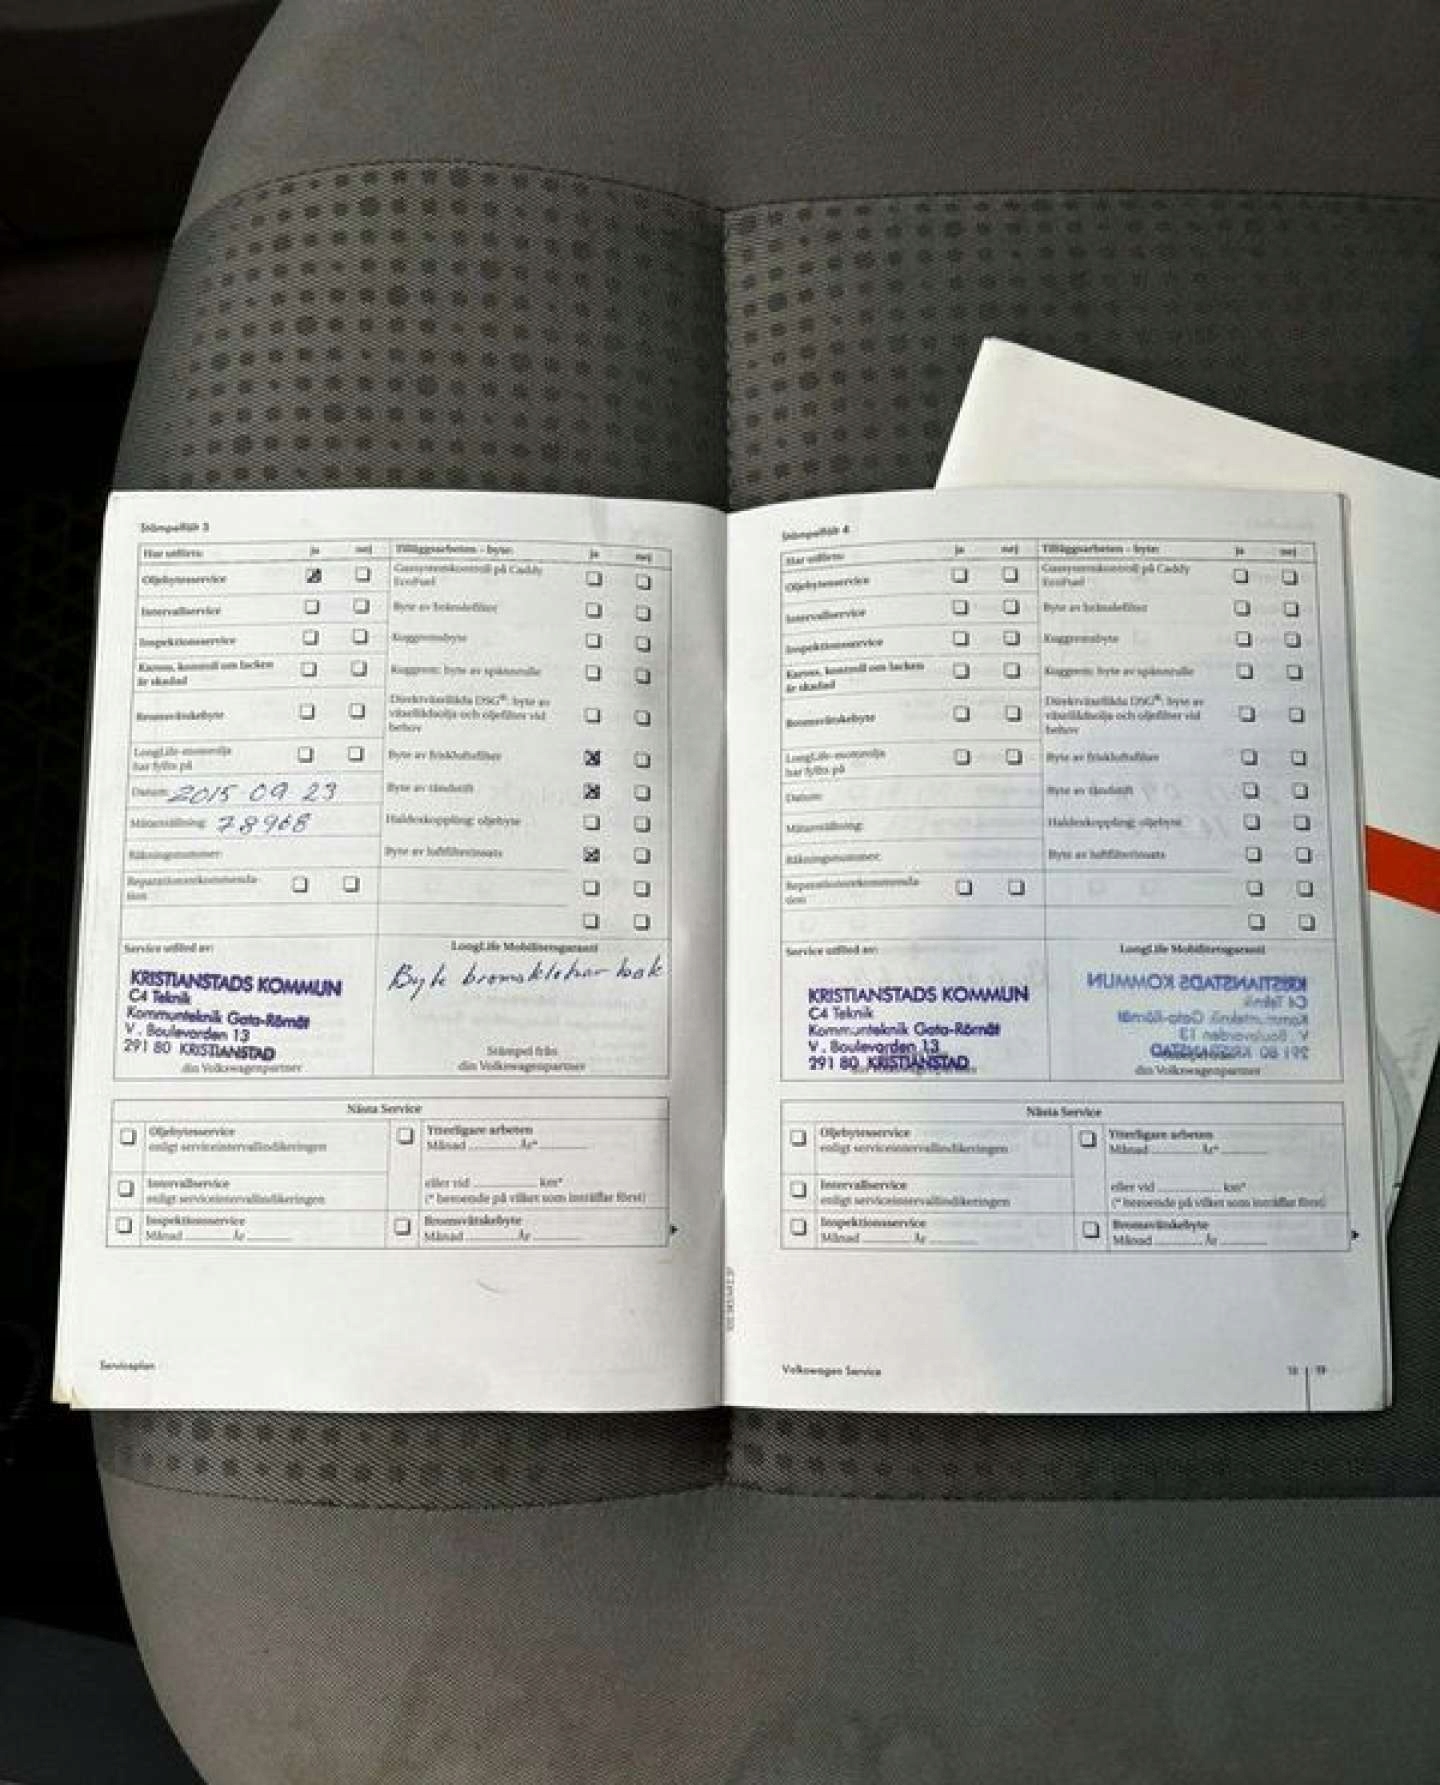 Stämpelfält 3
Har utförts: ja nej
Oljebytesservice
Intervallservice
Inspektionsservice
Kaross, kontroll om lacken
är skadad
Bromsvätskebyte
LongLife-motorolja
har fyllts på
Datum: 2015 09 23
Mätarställning: 78968
Räkningsnummer:
Reparationsrekommenda-
tion
Tilläggsarbeten - byte: ja nej
Gassystemskontroll på Caddy
EcoFuel
Byte av bränslefilter
Kuggremsbyte
Kuggrem: byte av spännrulle
Direktväxellåda DSG®: byte av
växellådsolja och oljefilter vid
behov
Byte av friskluftsfilter
Byte av tändstift
Haldexkoppling: oljebyte
Byte av luftfilterinsats
Service utförd av:
KRISTIANSTADS KOMMUN
C4 Teknik
Kommunteknik Gata-Römät
V. Boulevarden 13
291 80 KRISTIANSTAD
din Volkswagenpartner
LongLife Mobilitetsgaranti
Byte bromsklotsar bak
Stämpel från
din Volkswagenpartner
Nästa Service
Oljebytesservice
enligt serviceintervallindikeringen
Intervallservice
enligt serviceintervallindikeringen
Inspektionsservice
Månad År
Ytterligare arbeten
Månad År*
eller vid km*
(* beroende på vilket som inträffar först)
Bromsvätskebyte
Månad År
Serviceplan
Stämpelfält 4
Har utförts: ja nej
Oljebytesservice
Intervallservice
Inspektionsservice
Kaross, kontroll om lacken
är skadad
Bromsvätskebyte
LongLife-motorolja
har fyllts på
Datum:
Mätarställning:
Räkningsnummer:
Reparationsrekommenda-
tion
Tilläggsarbeten - byte: ja nej
Gassystemskontroll på Caddy
EcoFuel
Byte av bränslefilter
Kuggremsbyte
Kuggrem: byte av spännrulle
Direktväxellåda DSG®: byte av
växellådsolja och oljefilter vid
behov
Byte av friskluftsfilter
Byte av tändstift
Haldexkoppling: oljebyte
Byte av luftfilterinsats
Service utförd av:
KRISTIANSTADS KOMMUN
C4 Teknik
Kommunteknik Gata-Römät
V. Boulevarden 13
291 80 KRISTIANSTAD
din Volkswagenpartner
LongLife Mobilitetsgaranti
KRISTIANSTADS KOMMUN
C4 Teknik
Kommunteknik Gata-Römät
V. Boulevarden 13
291 80 KRISTIANSTAD
din Volkswagenpartner
Nästa Service
Oljebytesservice
enligt serviceintervallindikeringen
Intervallservice
enligt serviceintervallindikeringen
Inspektionsservice
Månad År
Ytterligare arbeten
Månad År*
eller vid km*
(* beroende på vilket som inträffar först)
Bromsvätskebyte
Månad År
Volkswagen Service
18 19